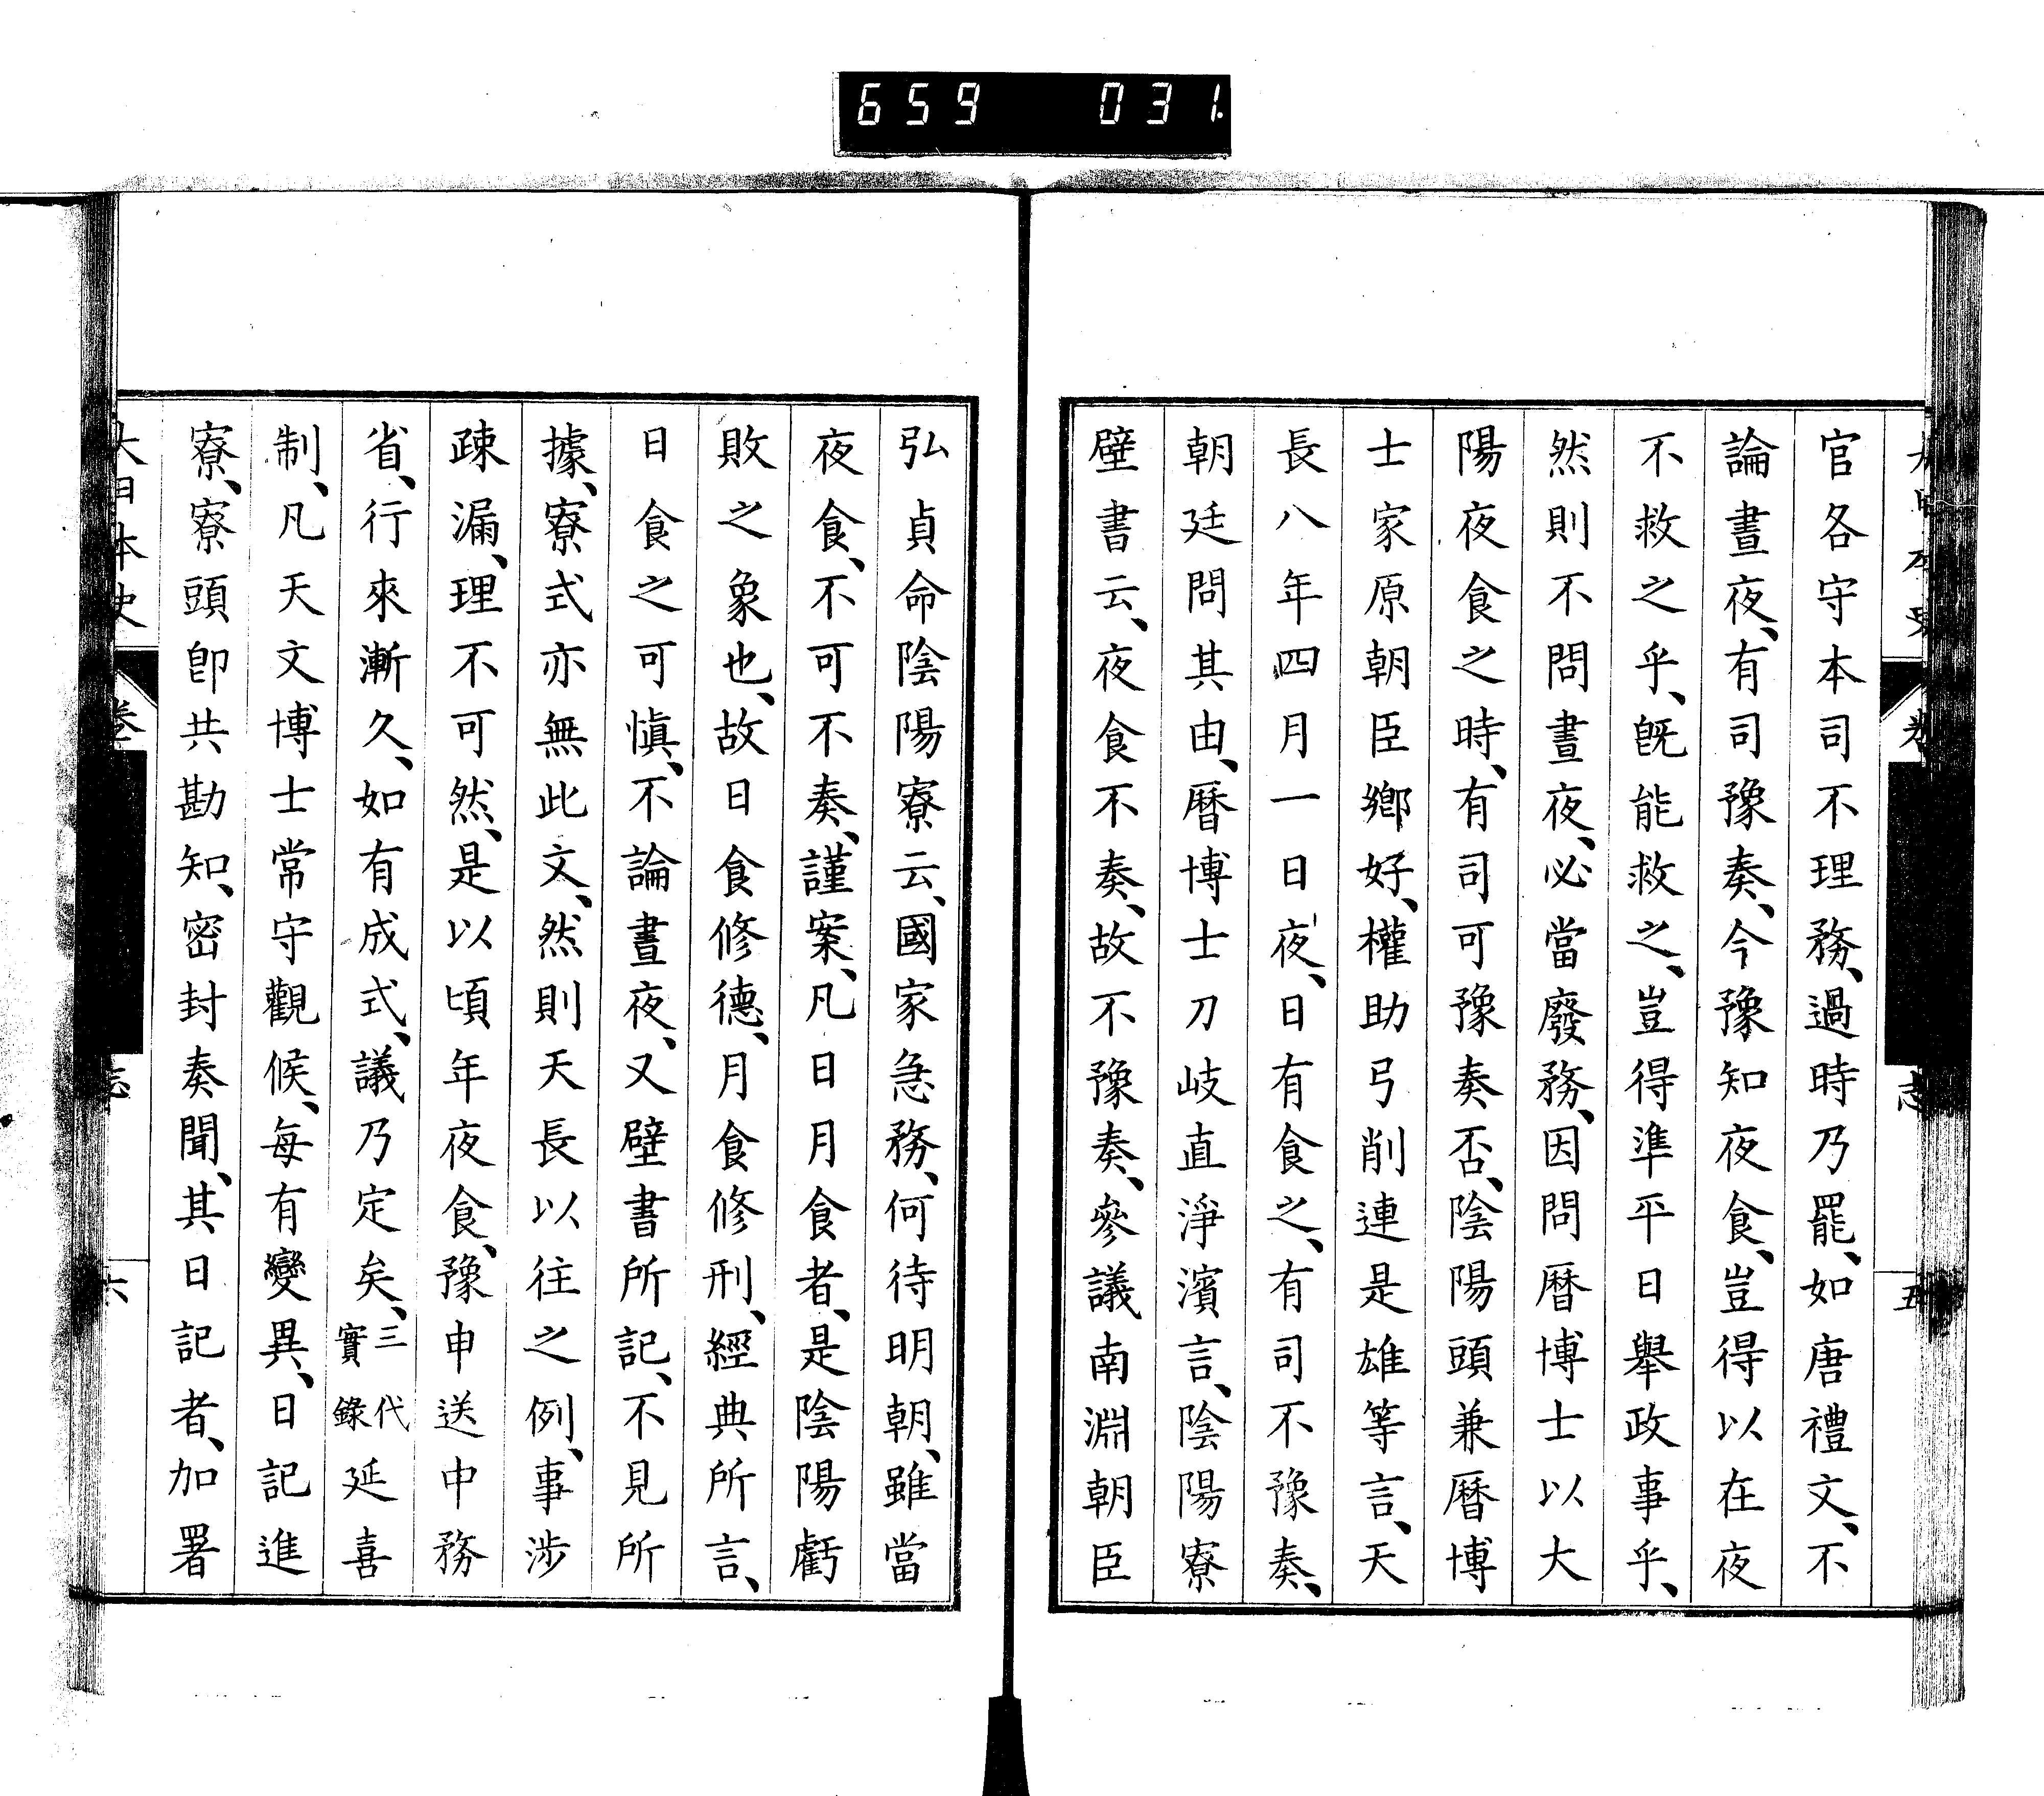 659 031
官各守本司不理務、過時乃罷、如唐禮文、不
論晝夜、有司豫奏、今豫知夜食、豈得以在夜
不救之乎、既能救之、豈得準平日舉政事乎、
然則不問晝夜、必當廢務、因問曆博士以大
陽夜食之時、有司可豫奏否、陰陽頭兼曆博
士家原朝臣鄉好、權助弓削連是雄等言、天
長八年四月一日夜、日有食之、有司不豫奏、
朝廷問其由、曆博士刀岐直淨濱言、陰陽寮
壁書云、夜食不奏、故不豫奏、參議南淵朝臣
弘貞命陰陽寮云、國家急務、何待明朝、雖當
夜食、不可不奏、謹案、凡日月食者、是陰陽虧
敗之象也、故日食修德、月食修刑、經典所言、
日食之可慎、不論晝夜、又壁書所記、不見所
據、寮式亦無此文、然則天長以往之例、事涉
疎漏、理不可然、是以頃年夜食、豫申送中務
省、行來漸久、如有成式、議乃定矣、三代實錄延喜
制、凡天文博士常守觀候、每有變異、日記進
寮、寮頭卽共勘知、密封奏聞、其日記者、加署